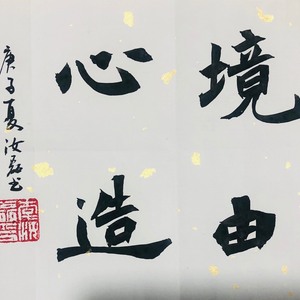 境由
心造
庚子夏汝磊书